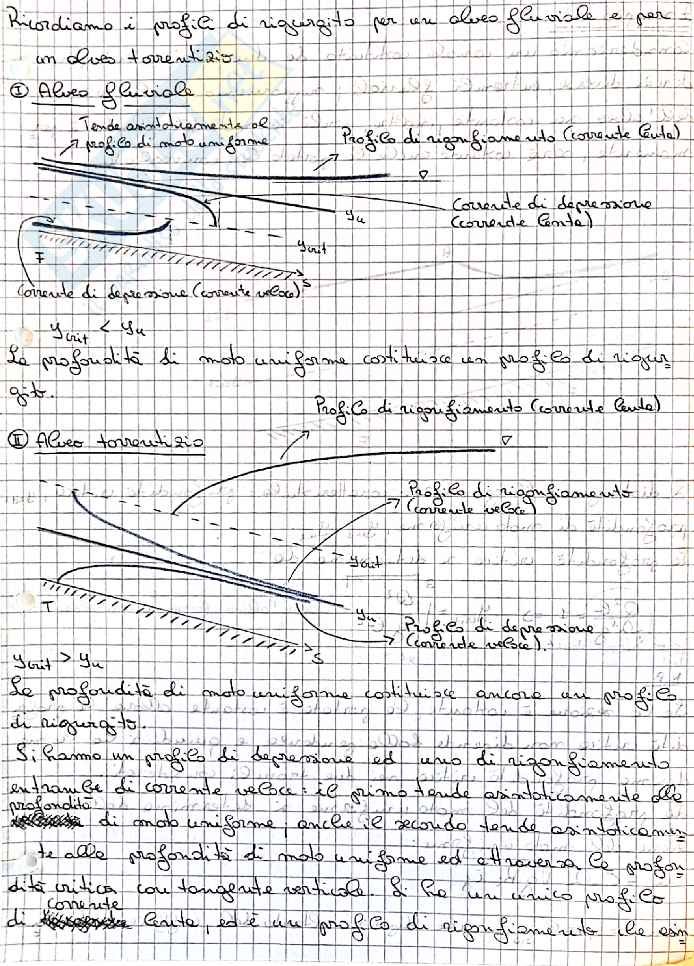 Ricordiamo i profili di rigurgito per un alveo fluviale e per
un alveo torrentizio.
I Alveo fluviale
Tende asintoticamente al
profilo di moto uniforme
Profilo di rigonfiamento (corrente lenta)
Corrente di depressione
(corrente lenta)
yu
ycrit
F
S
Corrente di depressione (corrente veloce)
ycrit < yu
La profondità di moto uniforme costituisce un profilo di rigur-
gito.
Profilo di rigonfiamento (corrente lenta)
II Alveo torrentizio
Profilo di rigonfiamento
(corrente veloce)
ycrit
yu
T
S
Profilo di depressione
(corrente veloce).
ycrit > yu
La profondità di moto uniforme costituisce ancora un profilo
di rigurgito.
Si hanno un profilo di depressione ed uno di rigonfiamento
entrambe di corrente veloce: il primo tende asintoticamente alla
profondità
di moto uniforme, anche il secondo tende asintoticamen-
te alla profondità di moto uniforme ed attraversa la profon-
dità critica con tangente verticale. Si ha un unico profilo
corrente
di lenta, ed è un profilo di rigonfiamento che asin-